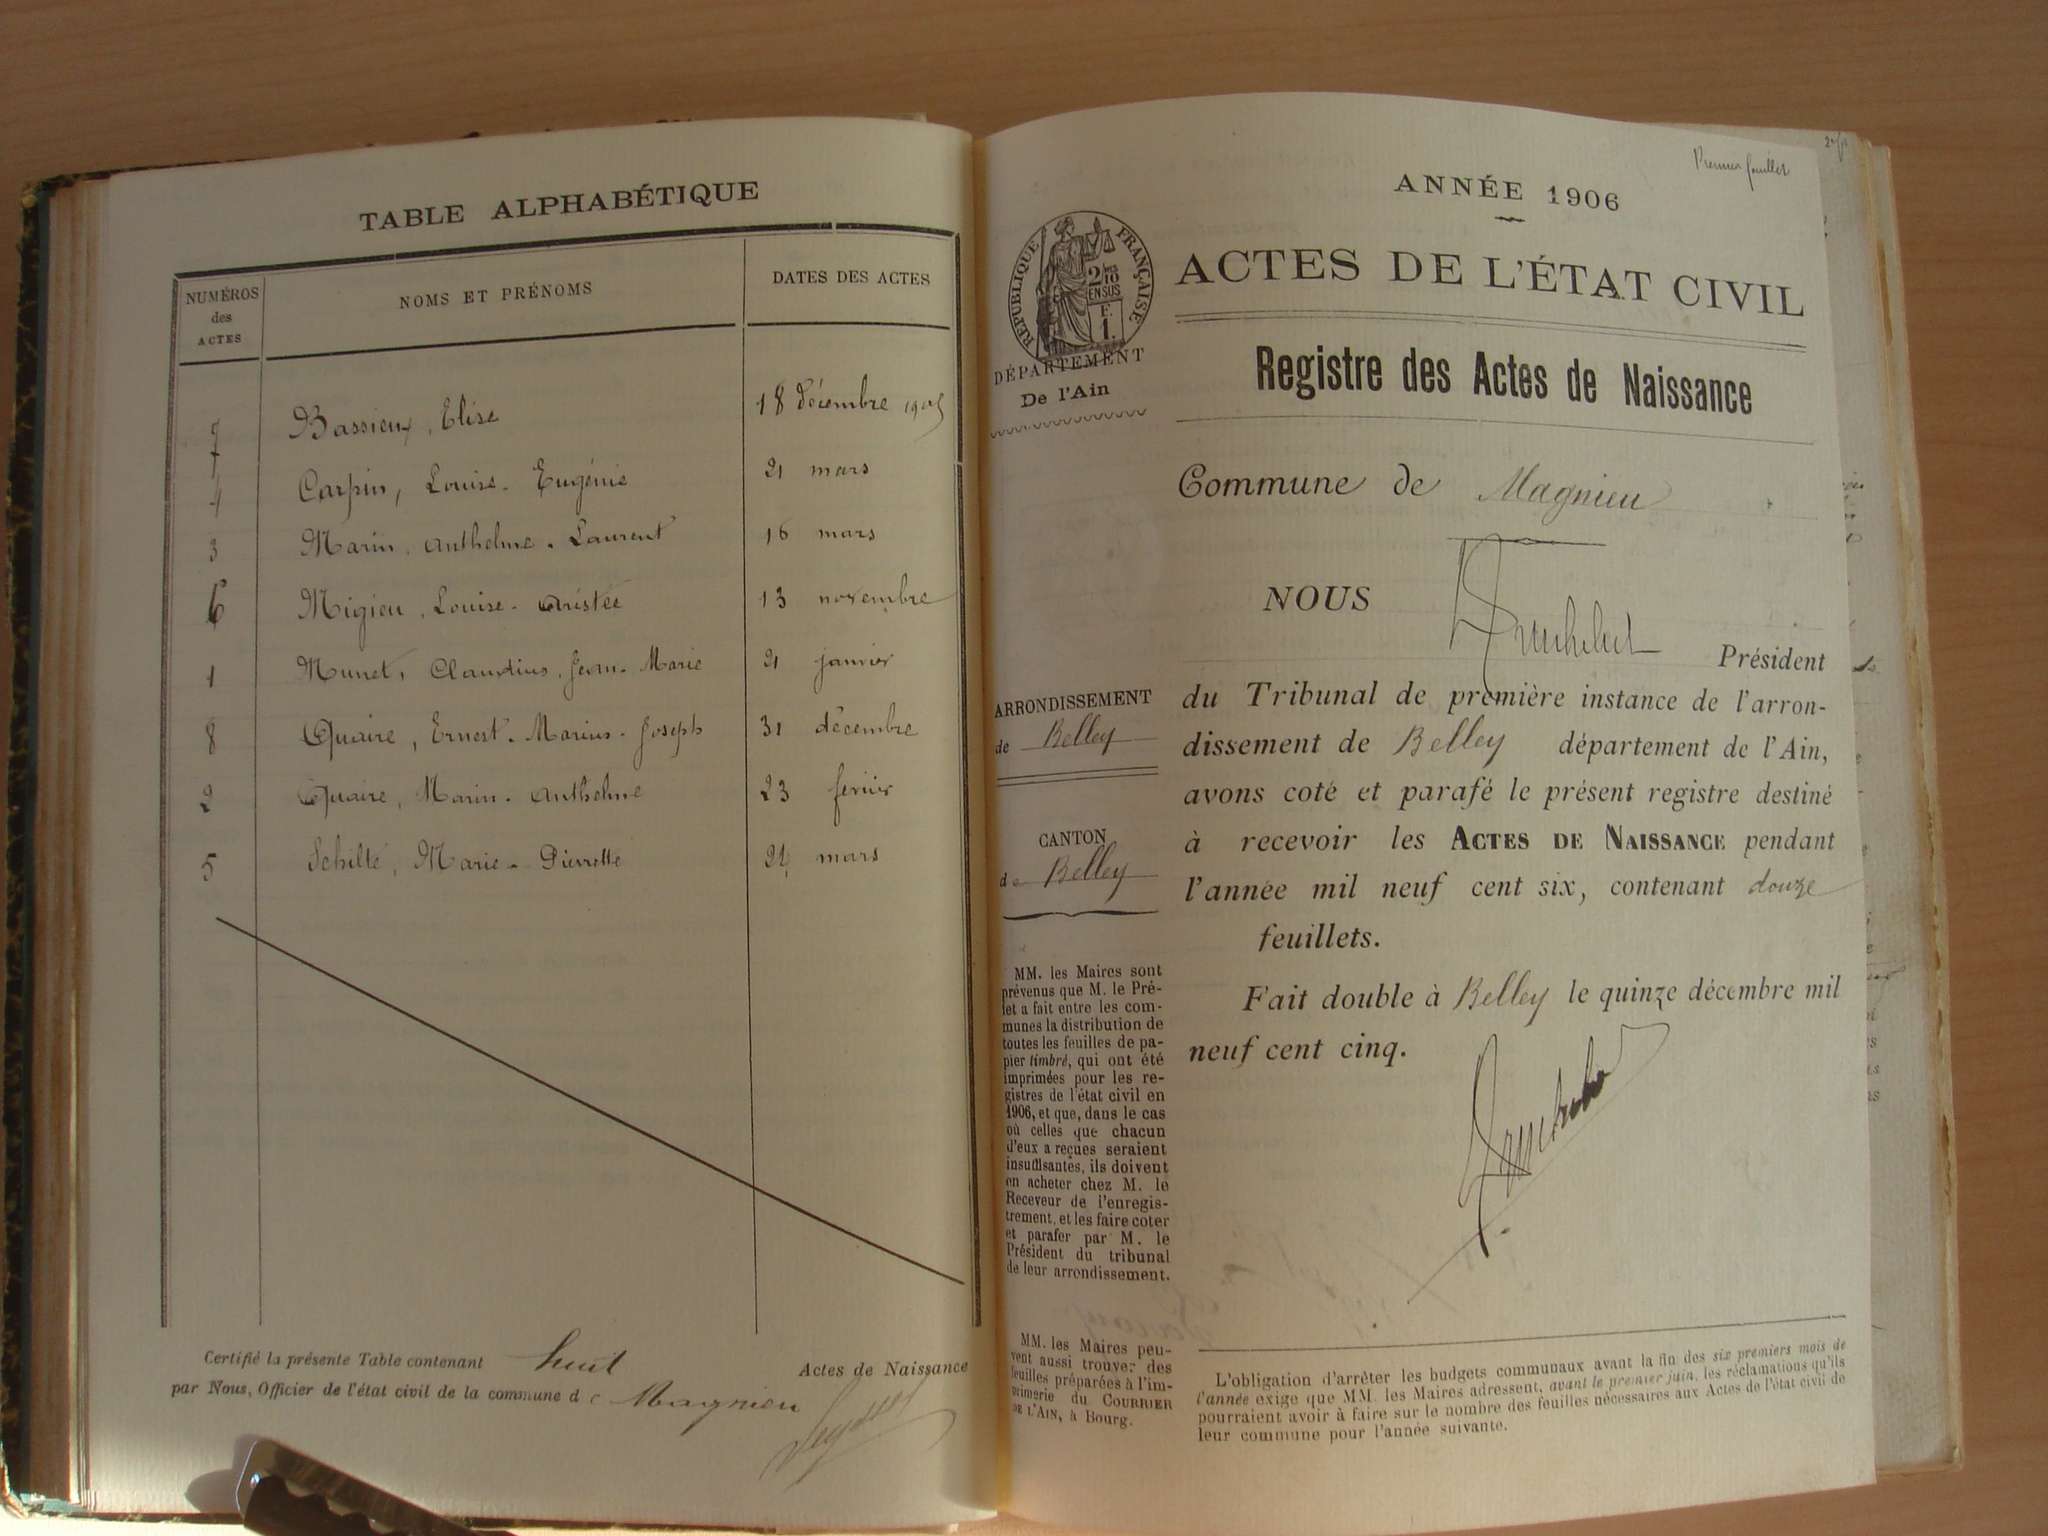 TABLE ALPHABÉTIQUE
NUMÉROS des ACTES
NOMS ET PRÉNOMS
DATES DES ACTES
7 Bassieux, Elise 18 décembre 1905
4 Carpin, Louise-Eugénie 21 mars
3 Marin, Anthelme-Laurent 16 mars
6 Migieu, Louise-Aristée 13 novembre
1 Munet, Claudius, Jean-Marie 21 janvier
8 Quaire, Ernest-Marius-Joseph 31 décembre
2 Quaire, Marin-Anthelme 23 fevrier
5 Schilte, Marie-Pierrette mars
Certifié la présente Table contenant huit Actes de Naissance
par Nous, Officier de l'état civil de la commune de Magnieu
Premier feuillet
ANNÉE 1906
RÉPUBLIQUE FRANÇAISE
2/10 EN SUS
F. 1.
DÉPARTEMENT
De l'Ain
ACTES DE L'ÉTAT CIVIL
Registre des Actes de Naissance
Commune de Magnieu
NOUS
Président
du Tribunal de première instance de l'arron-
dissement de Belley département de l'Ain,
avons coté et parafé le présent registre destiné
à recevoir les ACTES DE NAISSANCE pendant
l'année mil neuf cent six, contenant douze
feuillets.
Fait double à Belley le quinze décembre mil
neuf cent cinq.
ARRONDISSEMENT
de Belley
CANTON
de Belley
MM. les Maires sont
prévenus que M. le Pré-
fet a fait entre les com-
munes la distribution de
toutes les feuilles de pa-
pier timbré, qui ont été
imprimées pour les re-
gistres de l'état civil en
1906, et que, dans le cas
où celles que chacun
d'eux a reçues seraient
insuffisantes, ils doivent
en acheter chez M. le
Receveur de l'enregis-
trement, et les faire coter
et parafer par M. le
Président du tribunal
de leur arrondissement.
MM. les Maires peu-
vent aussi trouver des
feuilles préparées à l'im-
primerie du COURRIER
DE L'AIN, à Bourg.
L'obligation d'arrêter les budgets communaux avant la fin des six premiers mois de
l'année exige que MM. les Maires adressent, avant le premier juin, les réclamations qu'ils
pourraient avoir à faire sur le nombre des feuilles nécessaires aux Actes de l'état civil de
leur commune pour l'année suivante.